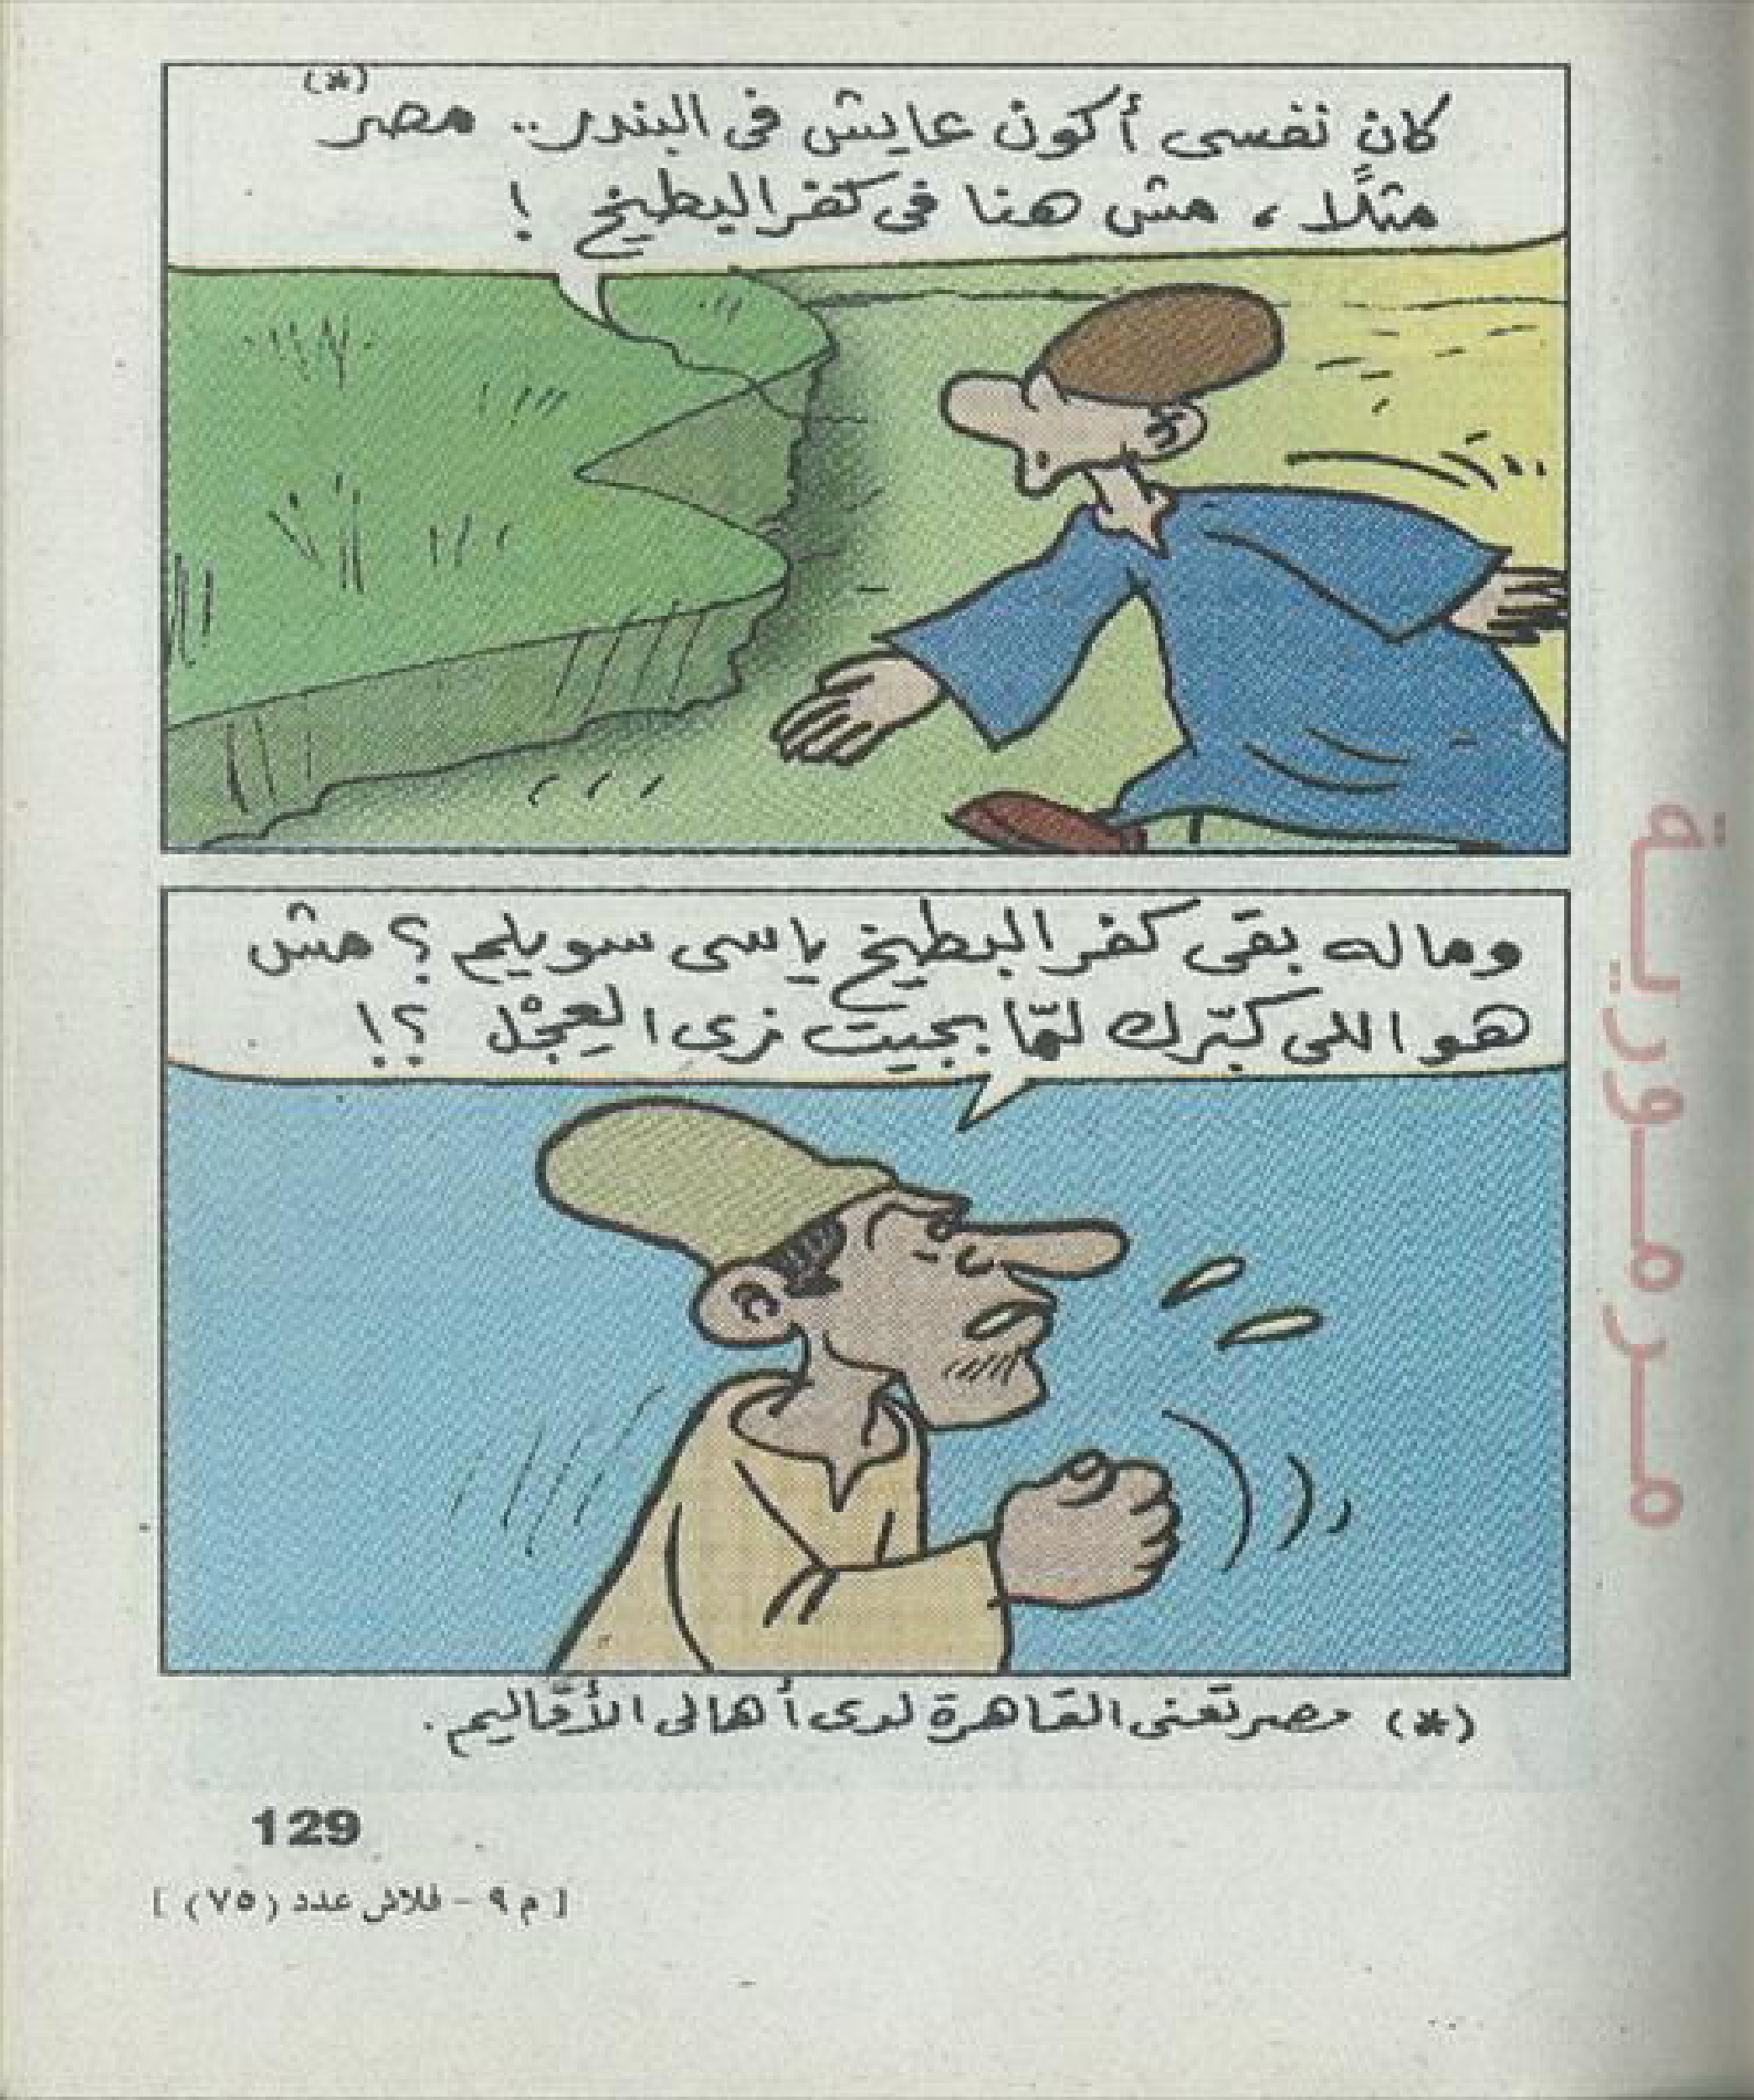 كان نفسى أكون عايش فى البندر.. مصر (*)
مثلًا، مش هنا فى كفر البطيخ !
وماله بقى كفر البطيخ ياسى سويلم ؟ مش
هو اللى كبّرك لمّا بجيت زى العِجْل ؟!
(*) مصر تعنى القاهرة لدى أهالى الأقاليم.
129
[ م ٩ - فلاش عدد (٧٥) ]
مرمورية